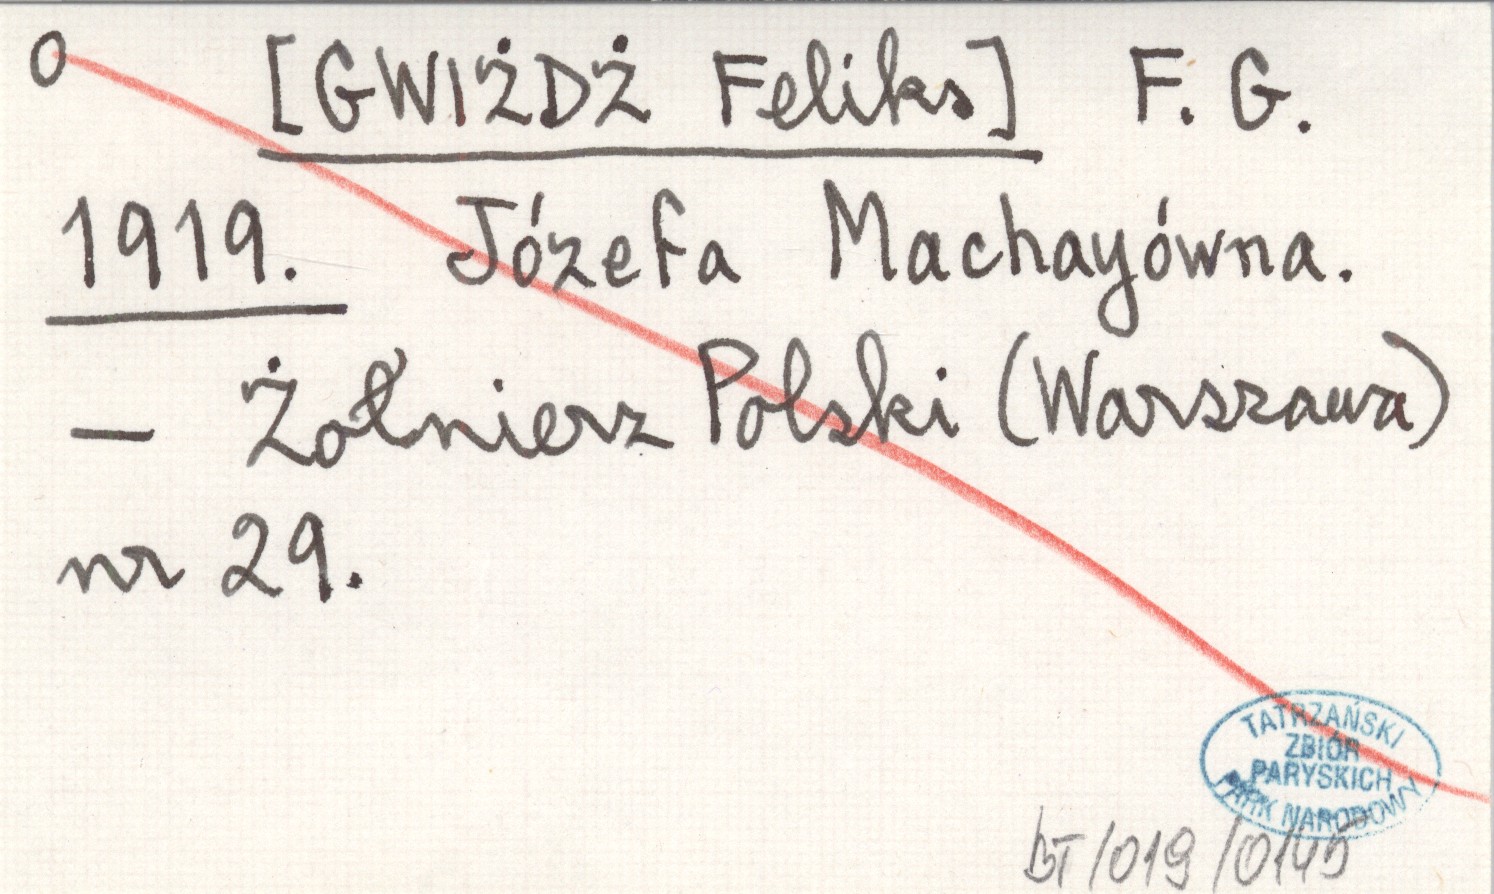 O [GWIŻDŻ Feliks] F. G.
1919. Józefa Machayówna.
— Żołnierz Polski (Warszawa)
nr 29.
TATRZAŃSKI
ZBIÓR
PARYSKICH
PARK NARODOWY
BT/019/0145